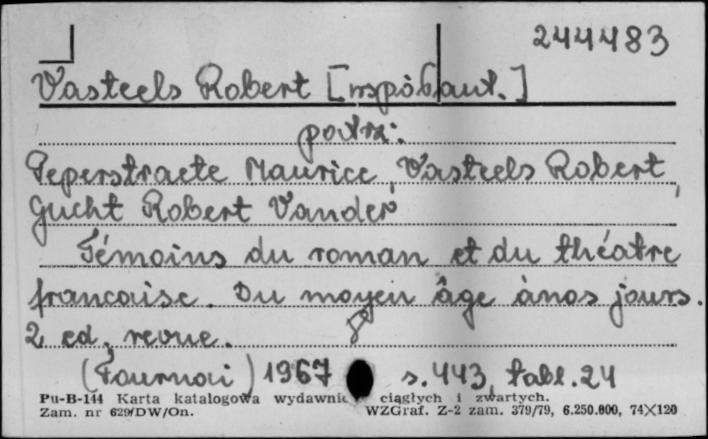 244483
Vasteels Robert [współaut.]
patrz:
Peperstraete Maurice, Vasteels Robert,
Gucht Robert Vander
Témoins du roman et du théatre
francaise. Du moyen âge ànos jours.
2 ed, revue.
(Tournai) 1967 s. 443, tabl. 24
Pu-B-144 Karta katalogowa wydawnic ciągłych i zwartych.
Zam. nr 629/DW/On. WZGraf. Z-2 zam. 379/79, 6.250.000, 74×120